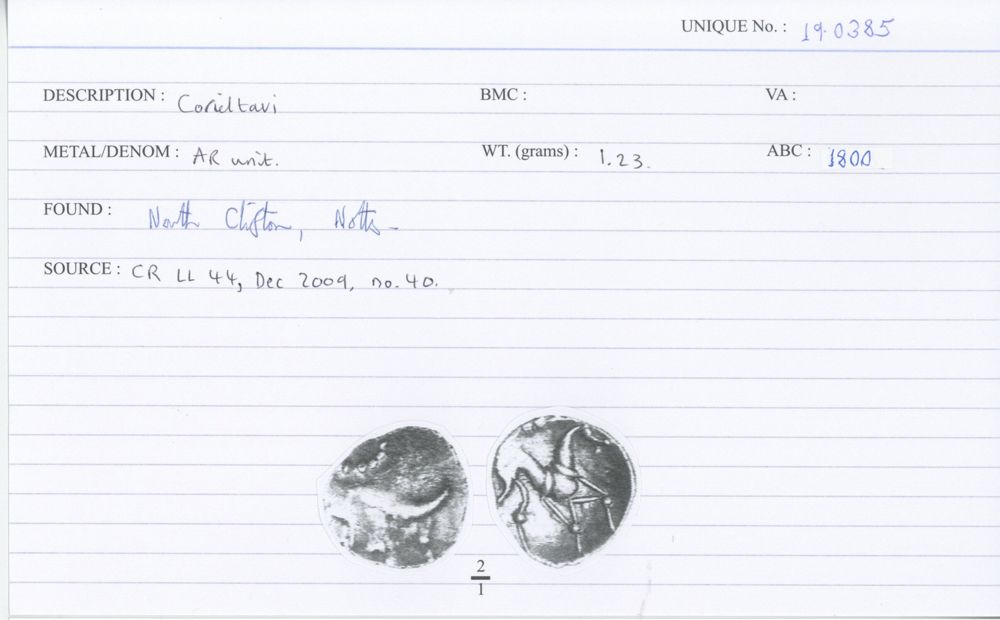 UNIQUE No. : 19-0385
DESCRIPTION : Corieltavi BMC : VA :
METAL/DENOM : AR unit. WT. (grams) : 1.23. ABC : 1800
FOUND : North Clifton, Notts -
SOURCE : CR LL 44, Dec 2009, no. 40.
2
1